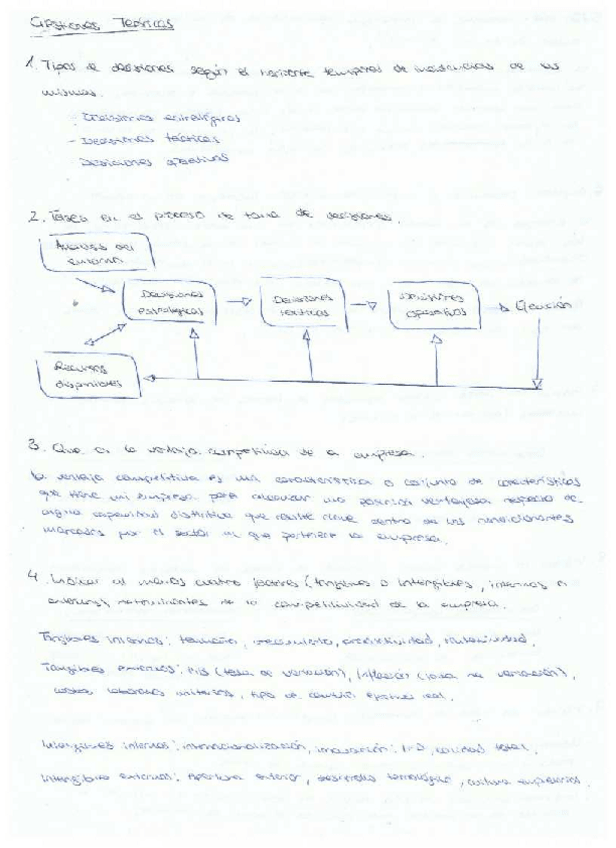 Cuestiones Teóricas
1. Tipos de decisiones según el horizonte temporal de incidencias de las
mismas.
- Decisiones estratégicas
- Decisiones tácticas
- Decisiones operativas
2. Fases en el proceso de toma de decisiones.
Análisis del
entorno
Decisiones
estratégicas
Decisiones
tácticas
Decisiones
operativas
Ejecución
Recursos
disponibles
3. Que es la ventaja competitiva de la empresa.
La ventaja competitiva es una característica o conjunto de características
que tiene una empresa para alcanzar una posición ventajosa respecto de
alguna capacidad distintiva que resulte clave dentro de los condicionantes
marcados por el sector al que pertenece la empresa.
4. Indicar al menos cuatro factores (tangibles o intangibles, internos o
externos) determinantes de la competitividad de la empresa.
Tangibles internos: tamaño, crecimiento, productividad, rentabilidad.
Tangibles externos: PIB (tasa de variación), Inflación (tasa de variación),
costes laborales unitarios, tipo de cambio efectivo real.
Intangibles internos: internacionalización, innovación: I+D, calidad total.
Intangibles externos: Apertura exterior, desarrollo tecnológico, cultura empresarial.